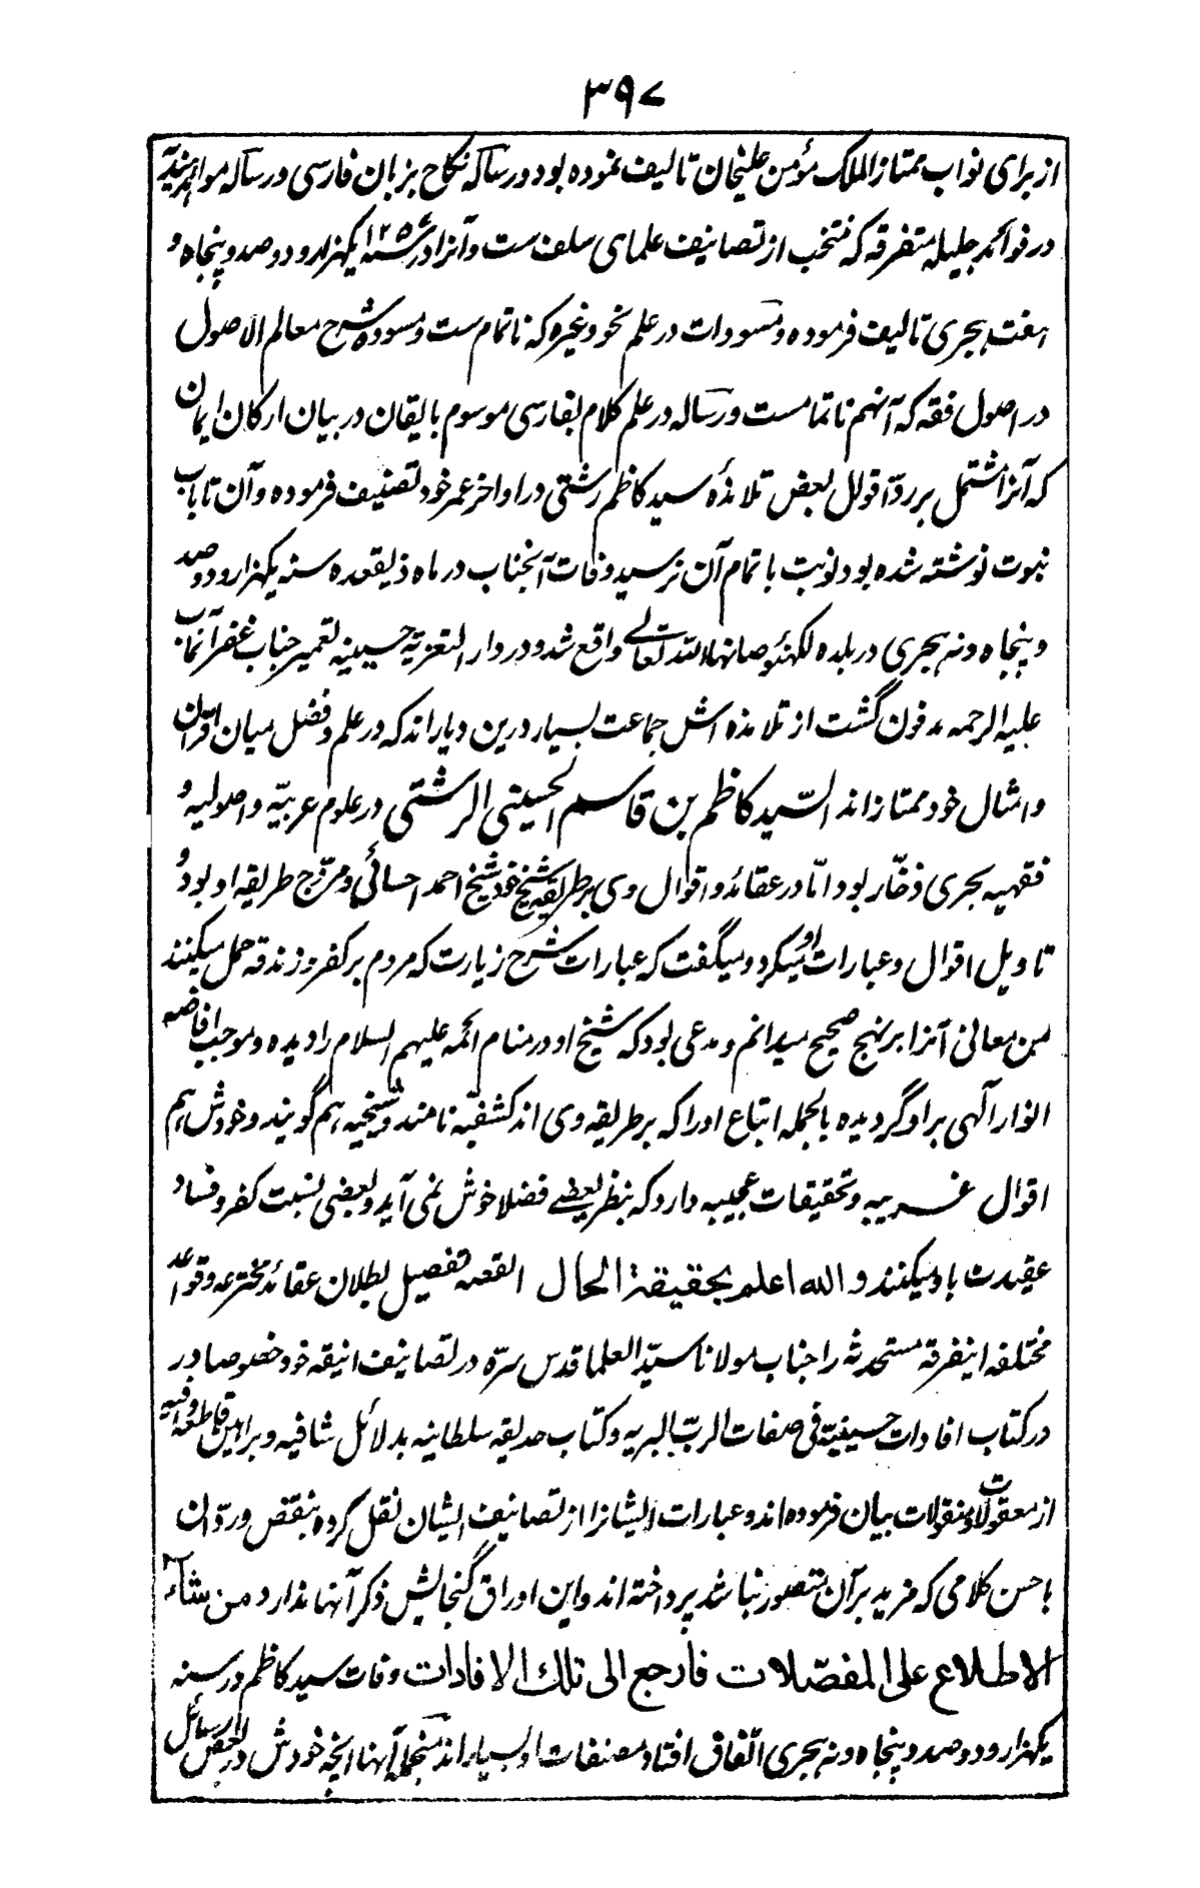 ۳۹۷
از برای نواب ممتاز الملک مؤمن علیخان تالیف نموده بود و رساله نکاح بزبان فارسی و رساله مواهبه سنیه
در فوائد جلیله متفرقه که منتخب از تصانیف علمای سلف ست و آنرا در سنه ۱۲۵۷ یکهزار و دو صد و پنجاه و
هفت هجری تالیف فرموده و مسودات در علم نحو و غیره که ناتمام ست و مسوده شرح معالم الاصول
در اصول فقه که آنهم ناتمامست و رساله در علم کلام بفارسی موسوم بایقان در بیان ارکان ایمان
که آنرا مشتمل بر ردّ اقوال بعض تلامذهٔ سید کاظم رشتی در اواخر عمر خود تصنیف فرموده و آن تا باب
نبوت نوشته شده بود نوبت باتمام آن نرسید وفات آنجناب در ماه ذیقعده سنه یکهزار و دو صد
و پنجاه و نه هجری در بلده لکهنؤ صانها الله تعالے واقع شد و در دار التعزیة حسینیه تعمیر جناب غفرآنماب
علیه الرحمه مدفون گشت از تلامذه اش جماعت بسیار درین دیار اند که در علم و فضل میان اقران
و امثال خود ممتاز اند السّید کاظم بن قاسم الحسینی الرشتی در علوم عربیّه و اصولیه و
فقهیه بحری ذخّار بود امّا در عقائد و اقوال وی بر طریقه شیخ خود شیخ احمد احسائی و مروّج طریقه او بود و
تاویل اقوال و عبارات او میکرد و میگفت که عبارات شرح زیارت که مردم بر کفر و زندقه حمل میکنند
من معانی آنرا بر نهج صحیح میدانم و مدعی بود که شیخ او در منام ائمه علیهم السلام را دیده و موجب افاضه
انوار آلهی بر او گردیده بالجمله اتباع او را که بر طریقه وی اند کشفیّه نامند و شیخیه هم گویند و خودش هم
اقوال غریبه و تحقیقات عجیبه دارد که بنظر بعضے فضلا خوش نمی آید و بعضی نسبت کفر و فساد
عقیدت باو میکنند و الله اعلم بحقیقة الحال القصه تفصیل بطلان عقائد مخترعه و قواعد
مختلفه اینفرقه مستحدثه را جناب مولانا سیّد العلما قدس سرّه در تصانیف انیقه خود خصوصا در
در کتاب افادات حسینیّة فی صفات الربّ البریه و کتاب حدیقه سلطانیه بدلائل شافیه و براهین قاطعه وافیه
از معقولات و منقولات بیان فرموده اند و عبارات ایشانرا از تصانیف ایشان نقل کرده بنقض و ردّ ان
باحسن کلامی که مزید بر آن متصور نباشد پرداخته اند و این اوراق گنجایش ذکر آنها ندارد من شاء
الاطلاع علی المفصّلات فارجع الی تلک الافادات وفات سید کاظم در سنه
یکهزار و دو صد و پنجاه و نه هجری اتّفاق افتاد مصنفات او بسیار اند منجمله آنها انچه خودش در بعض رسائل